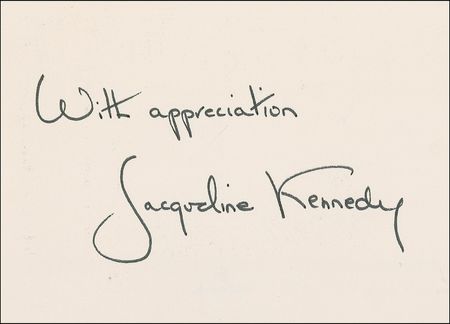 With appreciation
Jacqueline Kennedy